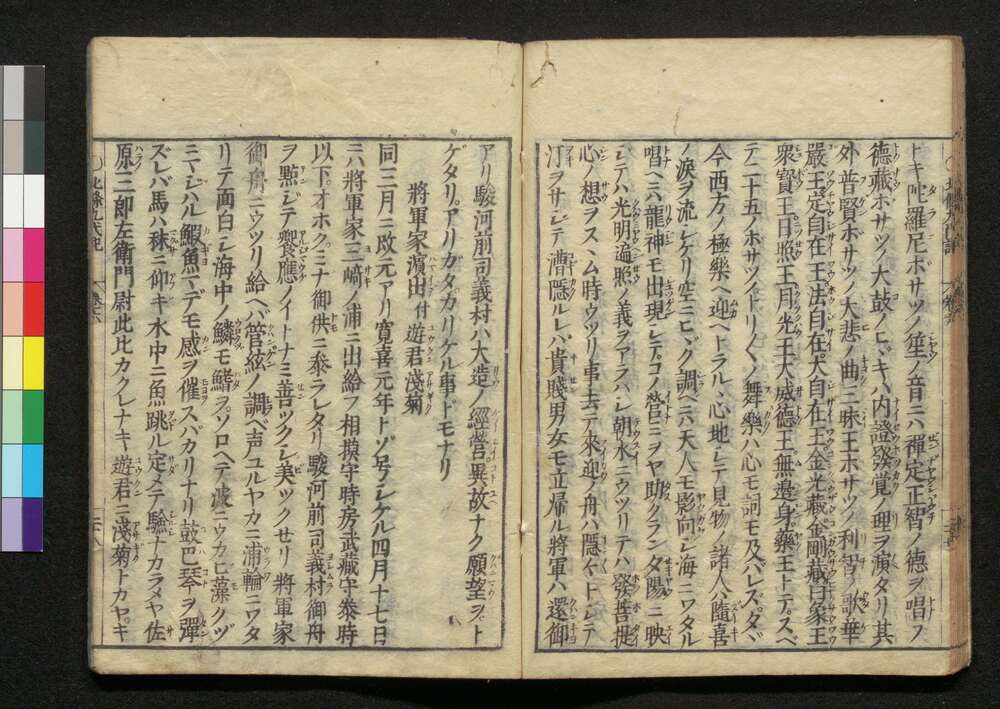 トキ陀羅尼ボサツノ笙ノ音ニハ禪定正智ノ德ヲ唱フ
德藏ボサツノ大鼓ノヒヾキハ内證發覺ノ理ヲ演タリ其
外普賢ボサツノ大悲ノ曲三昧王ボサツノ利智ノ歌華
嚴王定自在王法自在王大自在王金光藏金剛藏白象王
衆寶王日照王月光王大威德王無邊身藥王トテスベ
テ二十五ノボサツノトリ〱ノ舞樂ハ心モ詞モ及バレズタヾ
今西方ノ極樂ヘ迎ヘトラル心地シテ見物ノ諸人ハ隨喜
ノ淚ヲ流シケリ空ニヒヾク調ベニハ天人モ影向シ海ニワタル
唱ヘニハ龍神モ出現シテコノ營ミヲヤ助クラン夕陽ニ映
シテハ光明遍照ノ義ヲアラハシ朝水ニウツリテハ發菩提
心ノ想ヲスヽム時ウツリ事去テ來迎ノ舟ハ隱ケトシテ
汀ヲサシテ漕隱ルレバ貴賤男女モ立歸ル將軍ハ還御
アリ駿河前司義村ハ大造ノ經營異故ナク願望ヲト
ゲタリアリガタカリケル事ドモナリ
將軍家濱出付遊君淺菊
同三月ニ改元アリ寛喜元年トゾ号シケル四月十七日
ニハ將軍家三﨑ノ浦ニ出給フ相摸守時房武藏守泰時
以下オホクミナ御供ニ參ラレタリ駿河前司義村御舟
ヲ點シテ饗應ノイトナミ善ツクシ美ツクせリ將軍家
御舟ニウツリ給ヘバ管絃ノ調ベ声ユルヤカニ浦輪ニワタ
リテ面白シ海中ノ鱗モ鰭ヲソロヘテ波ニウカヒ藻クヅ
ニマシハル鰕魚マデモ感ヲ催スバカリナリ鼓巴琴ヲ彈
ズレバ馬ハ秣ニ仰キ水中ニ魚跳ル定メテ驗ナカラメヤ佐
原三郎左衛門尉此比カクレナキ遊君ニ淺菊トカヤキ